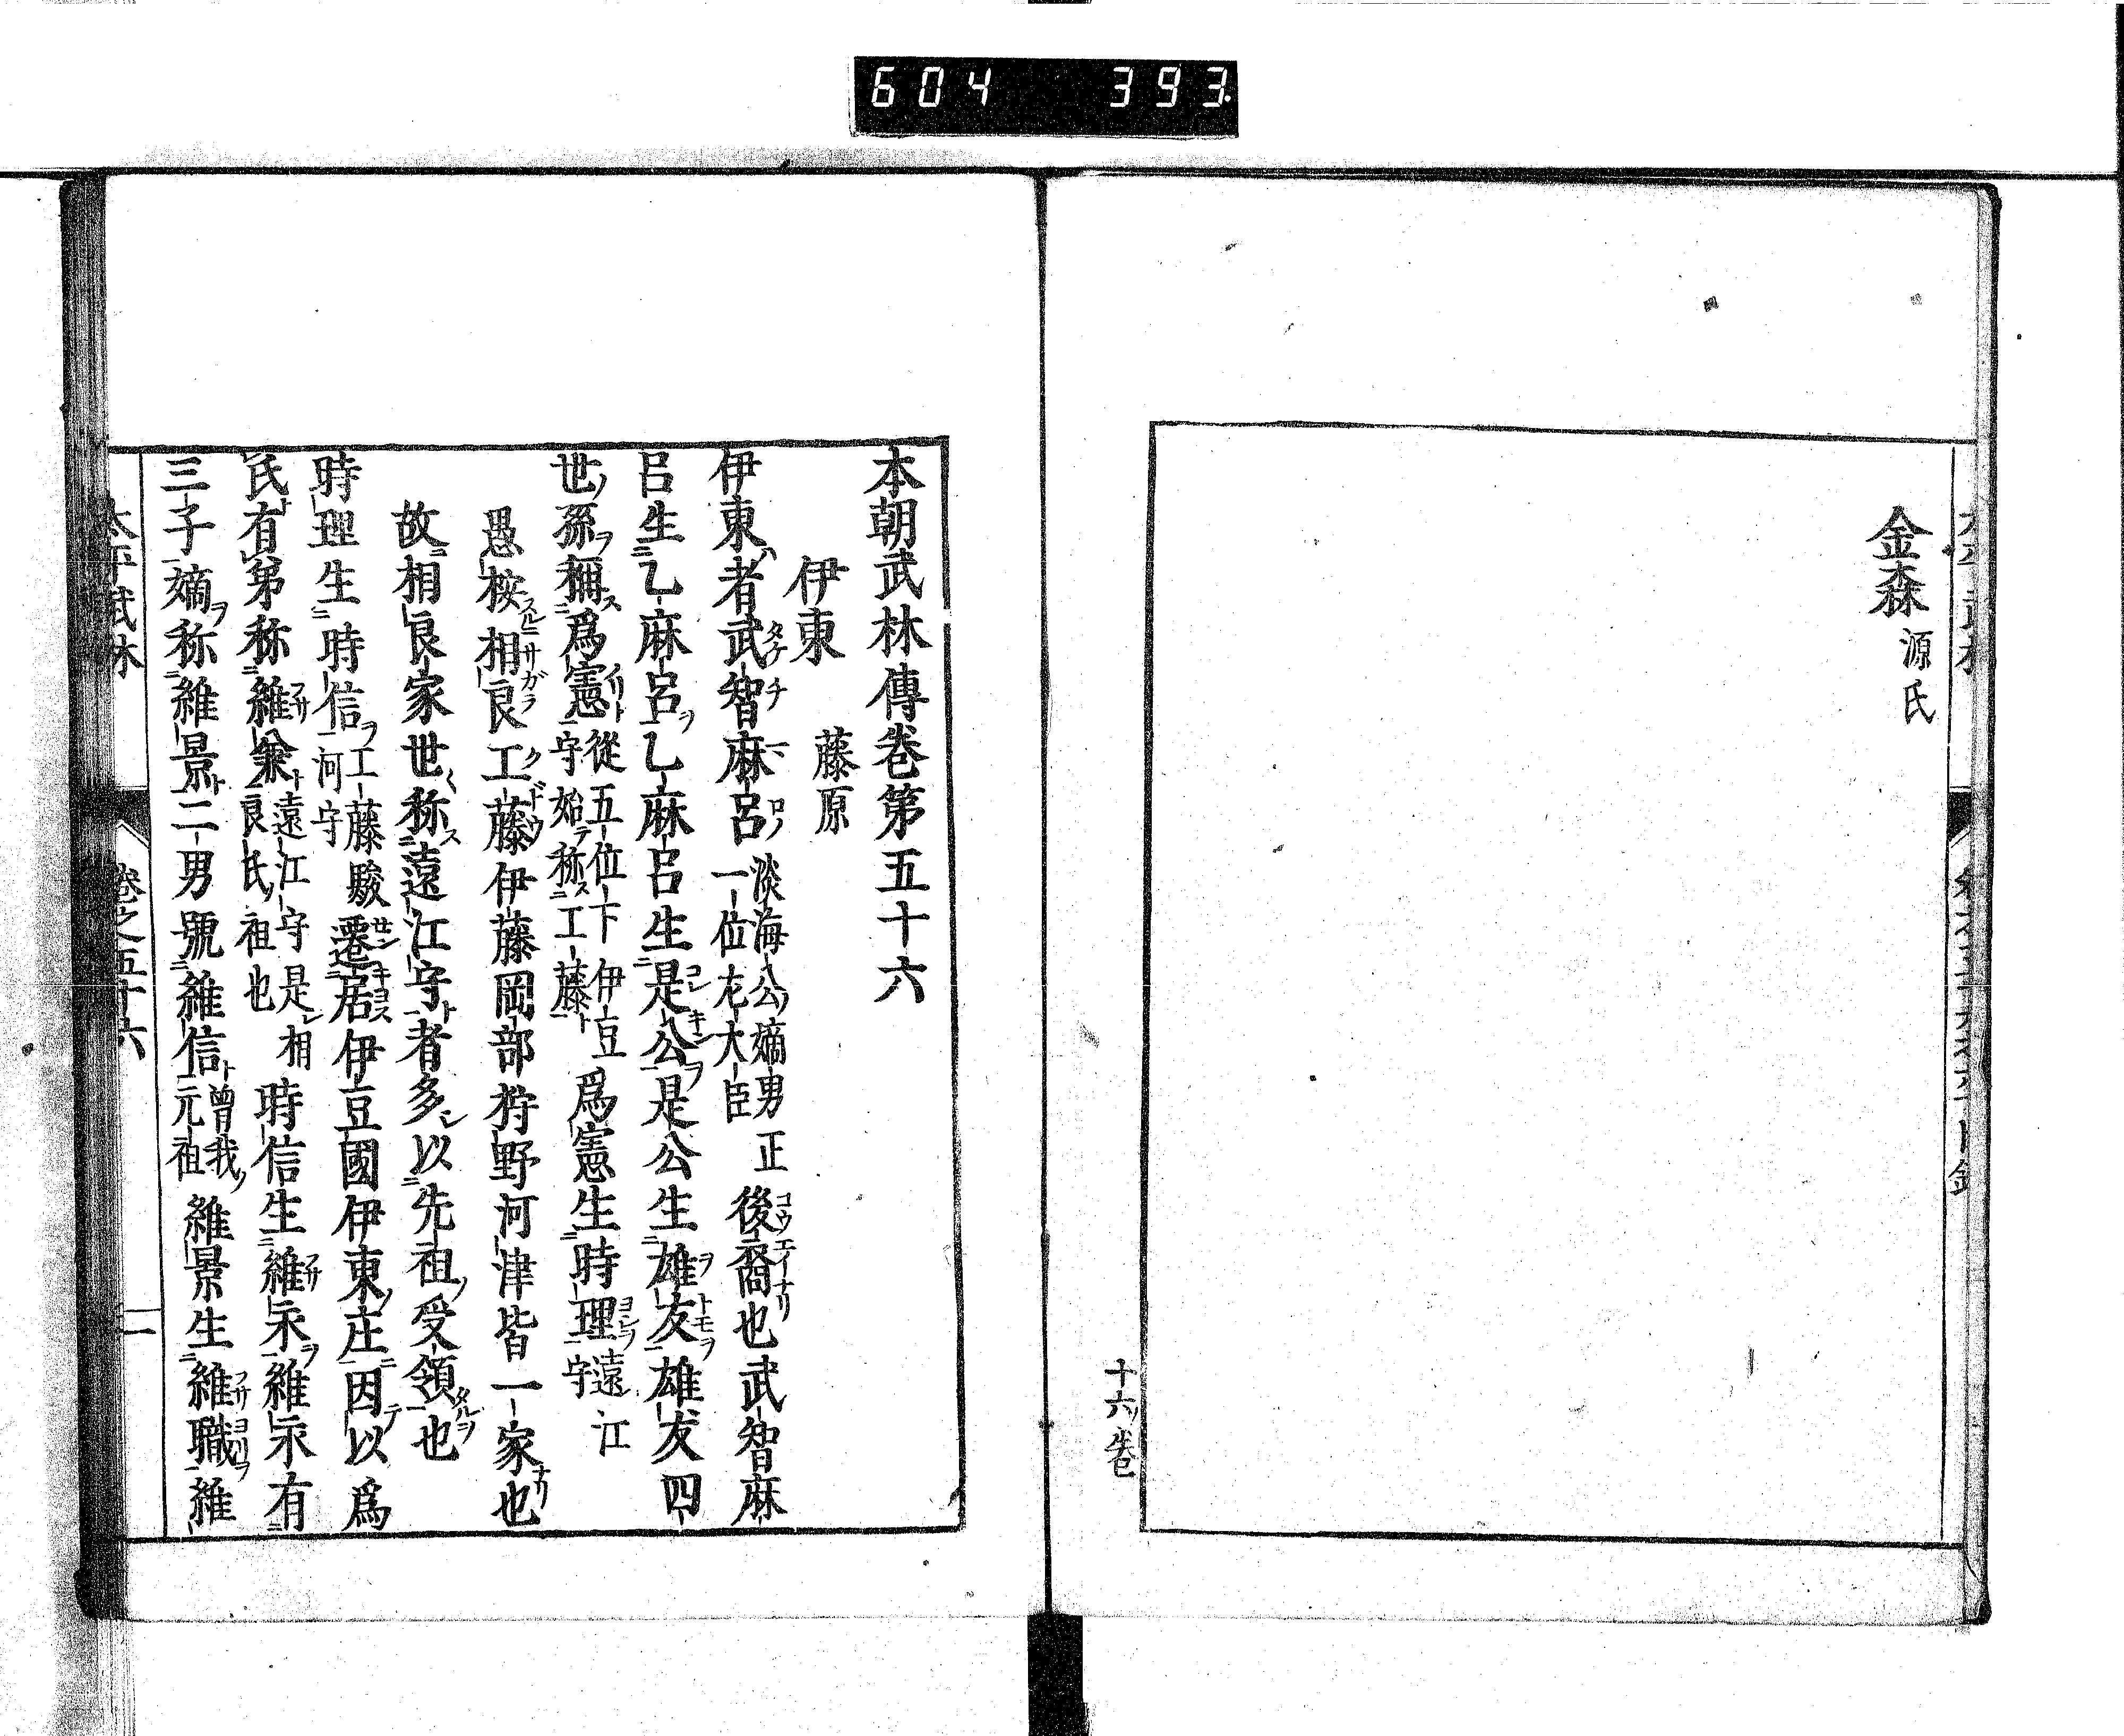 604 393
金森 源氏
十六ノ卷
本朝武林傳卷第五十六
伊東 藤原
伊東者武智麻呂 淡海公嫡男正一位左大臣 後裔也武智麻
呂生乙麻呂乙麻呂生是公是公生雄友雄友四
世孫稱爲憲 從五位下伊豆守始称工藤 爲憲生時理 遠江守
愚桉相良工藤伊藤岡部狩野河津皆一家也
故相良家世称遠江守者多以先祖受領也
時理生時信 工藤駿河守 遷居伊豆國伊東庄因以爲
氏有弟称維兼 遠江守是相良氏祖也 時信生維永維永有
三子嫡称維景二男號維信 曽我元祖 維景生維職維
太平武林 卷之五十六 一